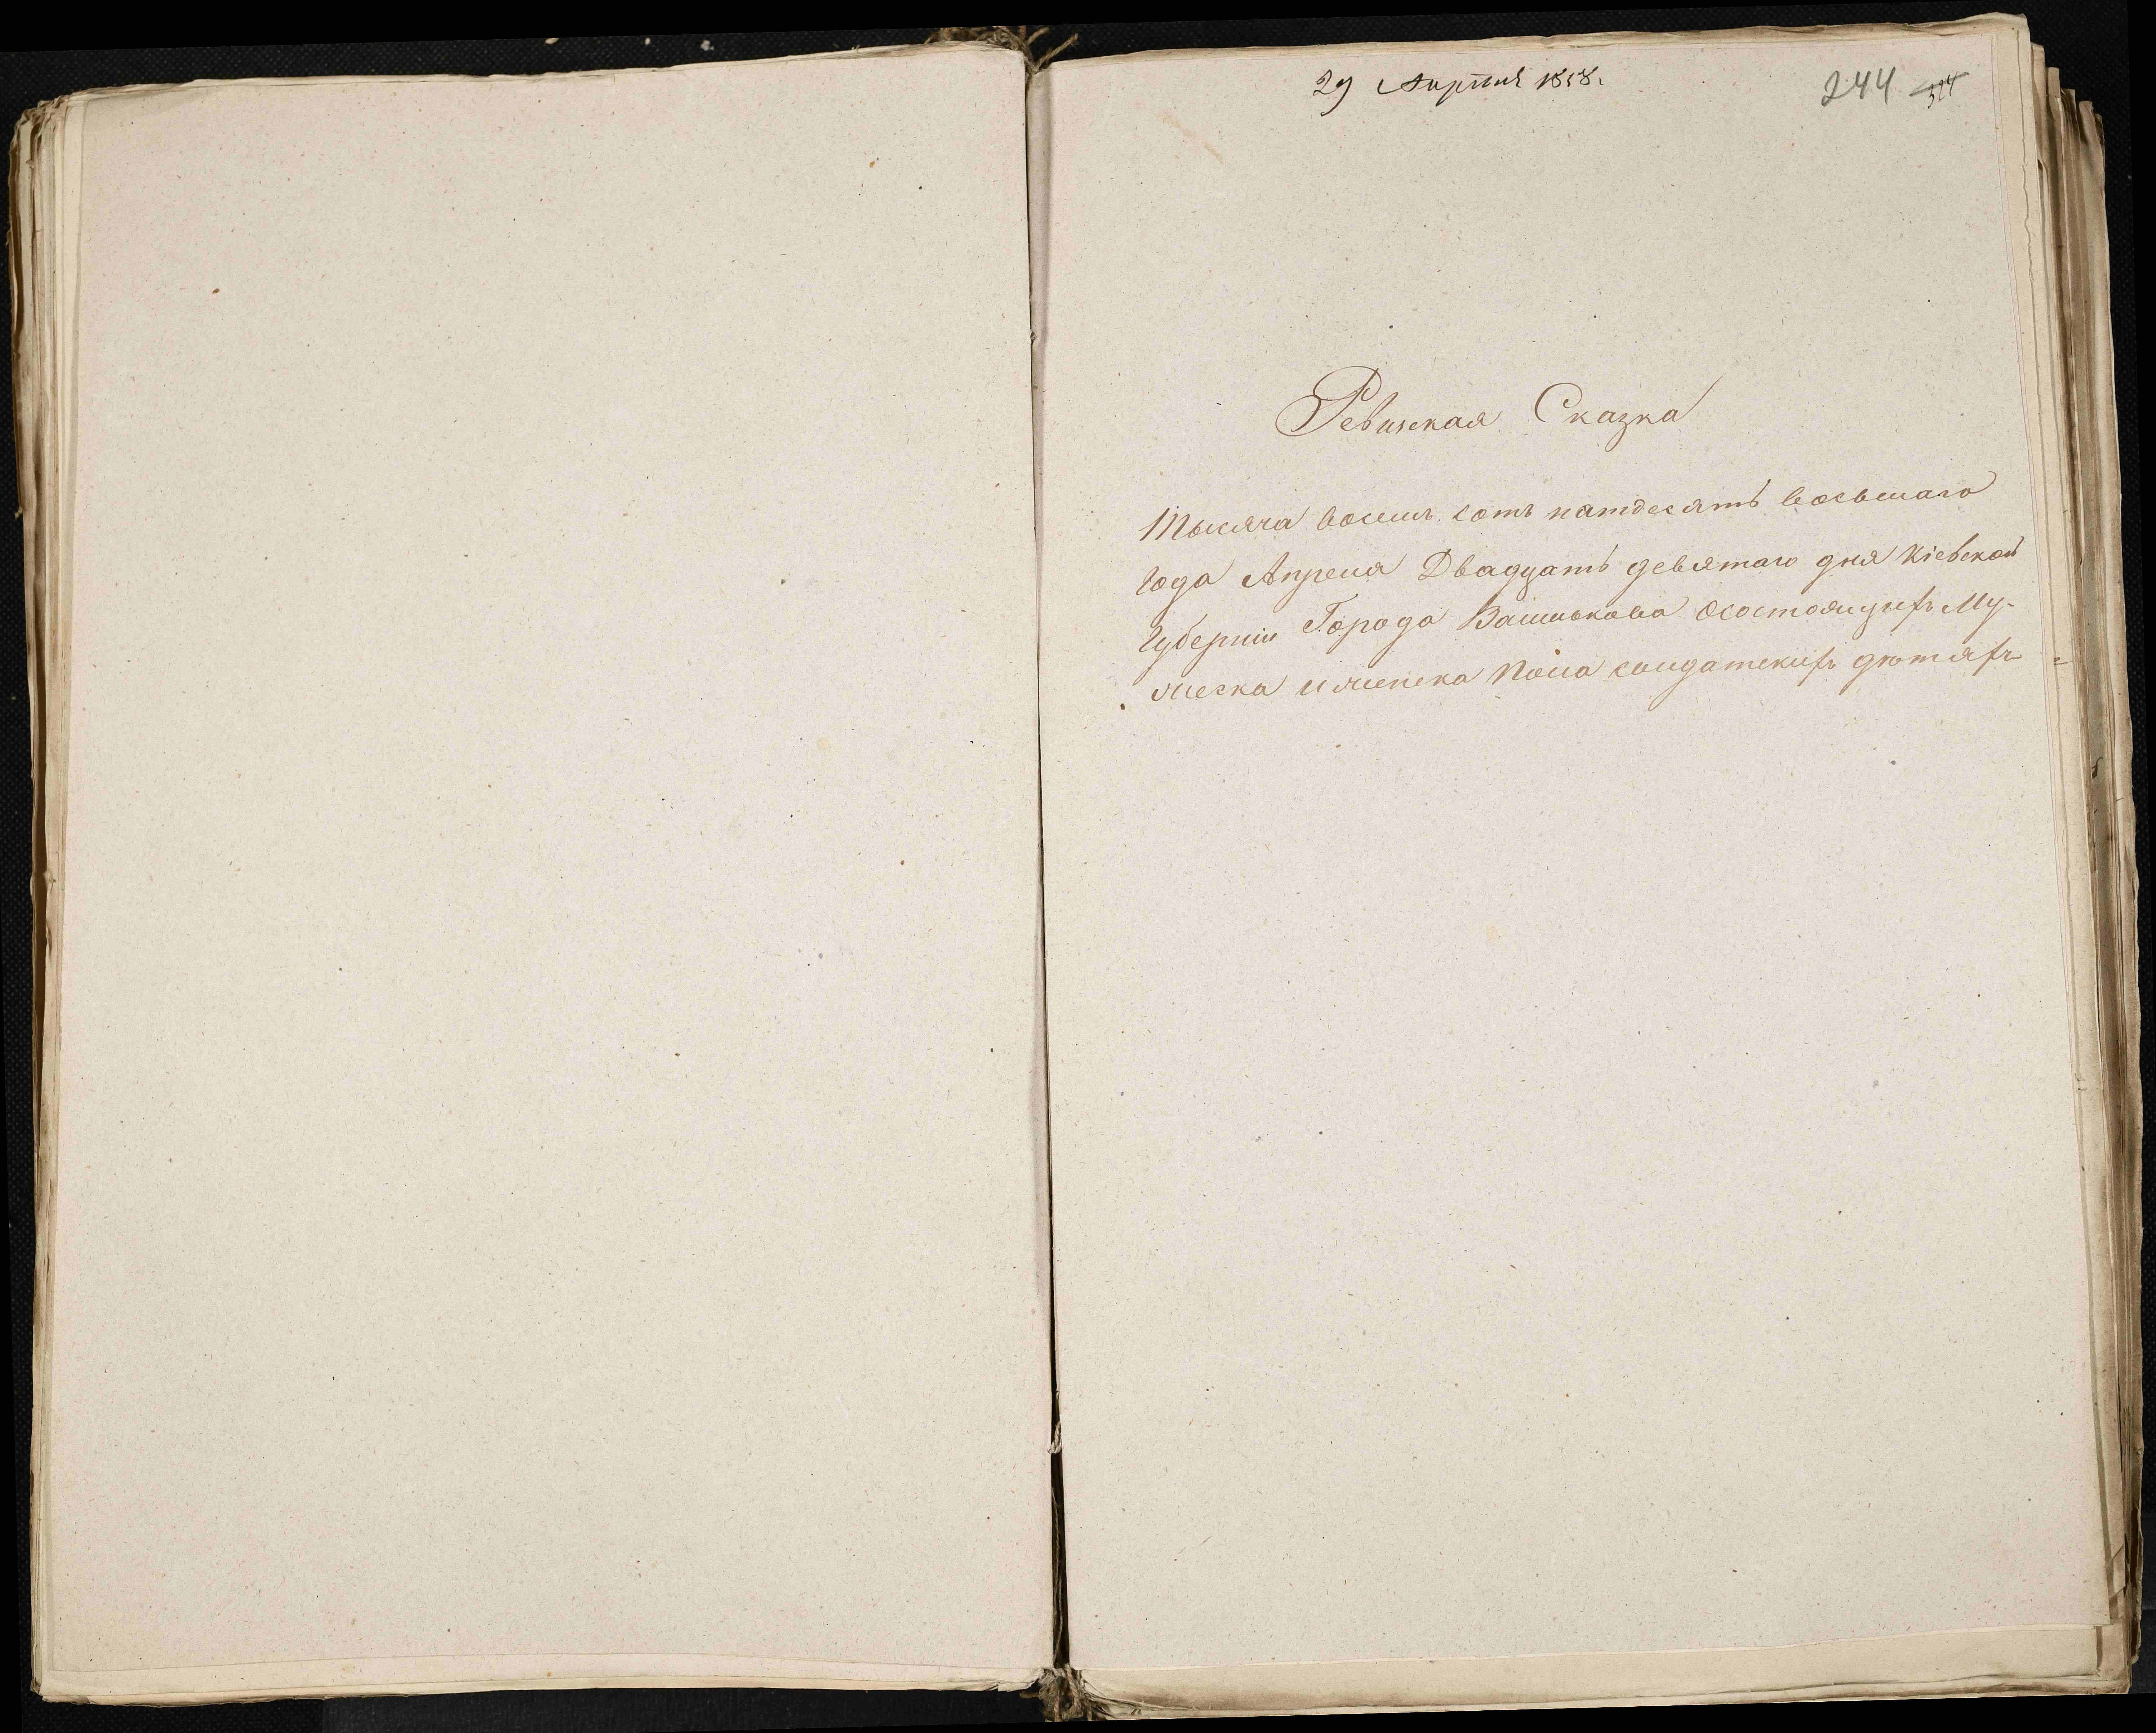 29 Апрѣля 1858.
244 374
Ревизская Сказка
Тысяча восемь сотъ пятдесятъ восьмаго
года Апреля Двадцать девятаго дня Кіевской
Губерніи Города Василькова о состоящихъ Му-
жеска и женска пола солдатскихъ дѣтяхъ